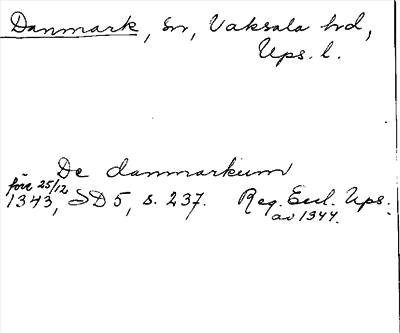 Danmark, sn, Vaksala hd,
Ups. l.
De danmarkum
före 25/12
1343, SD 5, s. 237. Reg. Eccl. Ups.
av 1344.